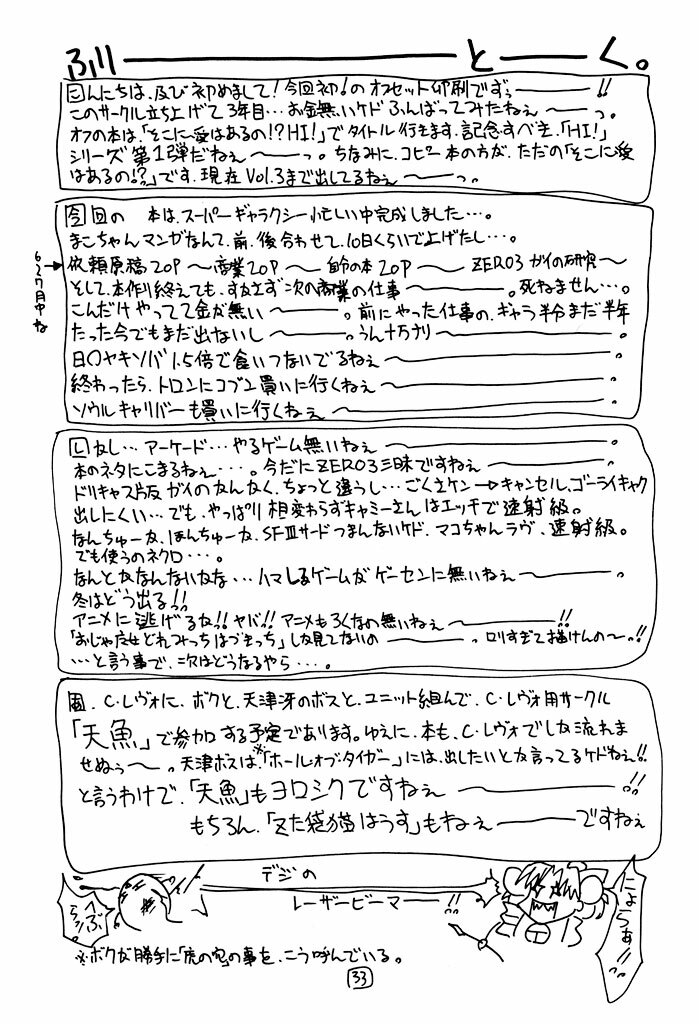 ふりーーーとーく。
こんにちは、及び初めまして!今回初!のオフセット印刷ですぅ———!!
このサークル立ち上げて3年目…お金無いケドふんばってみたねぇ〜——っ。
オフの本は、「そこに愛はあるの!?HI!」でタイトル行きます。記念すべき、「HI!」
シリーズ第1弾だねぇ〜——っ。ちなみに、コピー本の方が、ただの「そこに愛
はあるの!?」です。現在Vol.3まで出してるねぇ〜——っ。
今回の 本は、スーパーギャラクシー忙しい中完成しました…。
まこちゃんマンガなんて、前、後合わせて、10日くらいで上げたし…。
6〜7月中ね
依頼原稿20P〜商業20P〜自分の本20P〜ZERO3ガイの研究〜
そして、本作り終えても、すぐさま次の商業の仕事〜———。死ねません…。
こんだけやってて金が無い〜———。前にやった仕事の、ギャラ半分まだ半年
たった今でもまだ出ないし〜———。うん十万ナリ〜———。
日〇ヤキソバ1.5倍で食いつないでるねぇ〜———。
終わったら、トロンにコブン買いに行くねぇ〜———。
ソウルキャリバーも買いに行くねぇ〜———。
しなし…アーケード…やるゲーム無いねぇ〜———。
本のネタにこまるねぇ…。今だにZERO3三昧ですねぇ〜———。
ドリキャス版ガイのなんなく、ちょっと違うし…ごくさケン→キャンセル、ゴーライキャク
出しにくい…でも、やっぱり相変わらずキャミーさんはエッチで速射級。
なんちゅーか、ほんちゅーか、SFⅢサードつまんないケド、マコちゃんラヴ、速射級。
でも使うのネクロ…。
なんとかなんないかな…ハマレるゲームがゲーセンに無いねぇ〜———。
冬はどう出る!!
アニメに逃げるな!!ヤバ!!アニメもろくなの無いねぇ〜———!!
「おジャ魔女どれみっちはづきっち」しか見てないの———。ロリすぎて描けんの〜。!!
…と言う事で、次はどうなるやら…。
C.レヴォに、ボクと、天津冴のボスと、ユニット組んで、C.レヴォ用サークル
「天魚」で参加する予定であります。ゆえに、本も、C.レヴォでしか流れま
せぬぅ〜—。天津ボスは、※「ホールオブタイガー」には、出したいとか言ってるケドねぇ!!
と言うわけで、「天魚」もヨロシクですねぇ———!!
もちろん、「ずた袋猫はうす」もねぇ———ですねぇ
デジの
レーザービーマ——!!
へぶらっ!!
にょらぁ!!
※ボクが勝手に「虎の穴」の事を、こう呼んでいる。
33